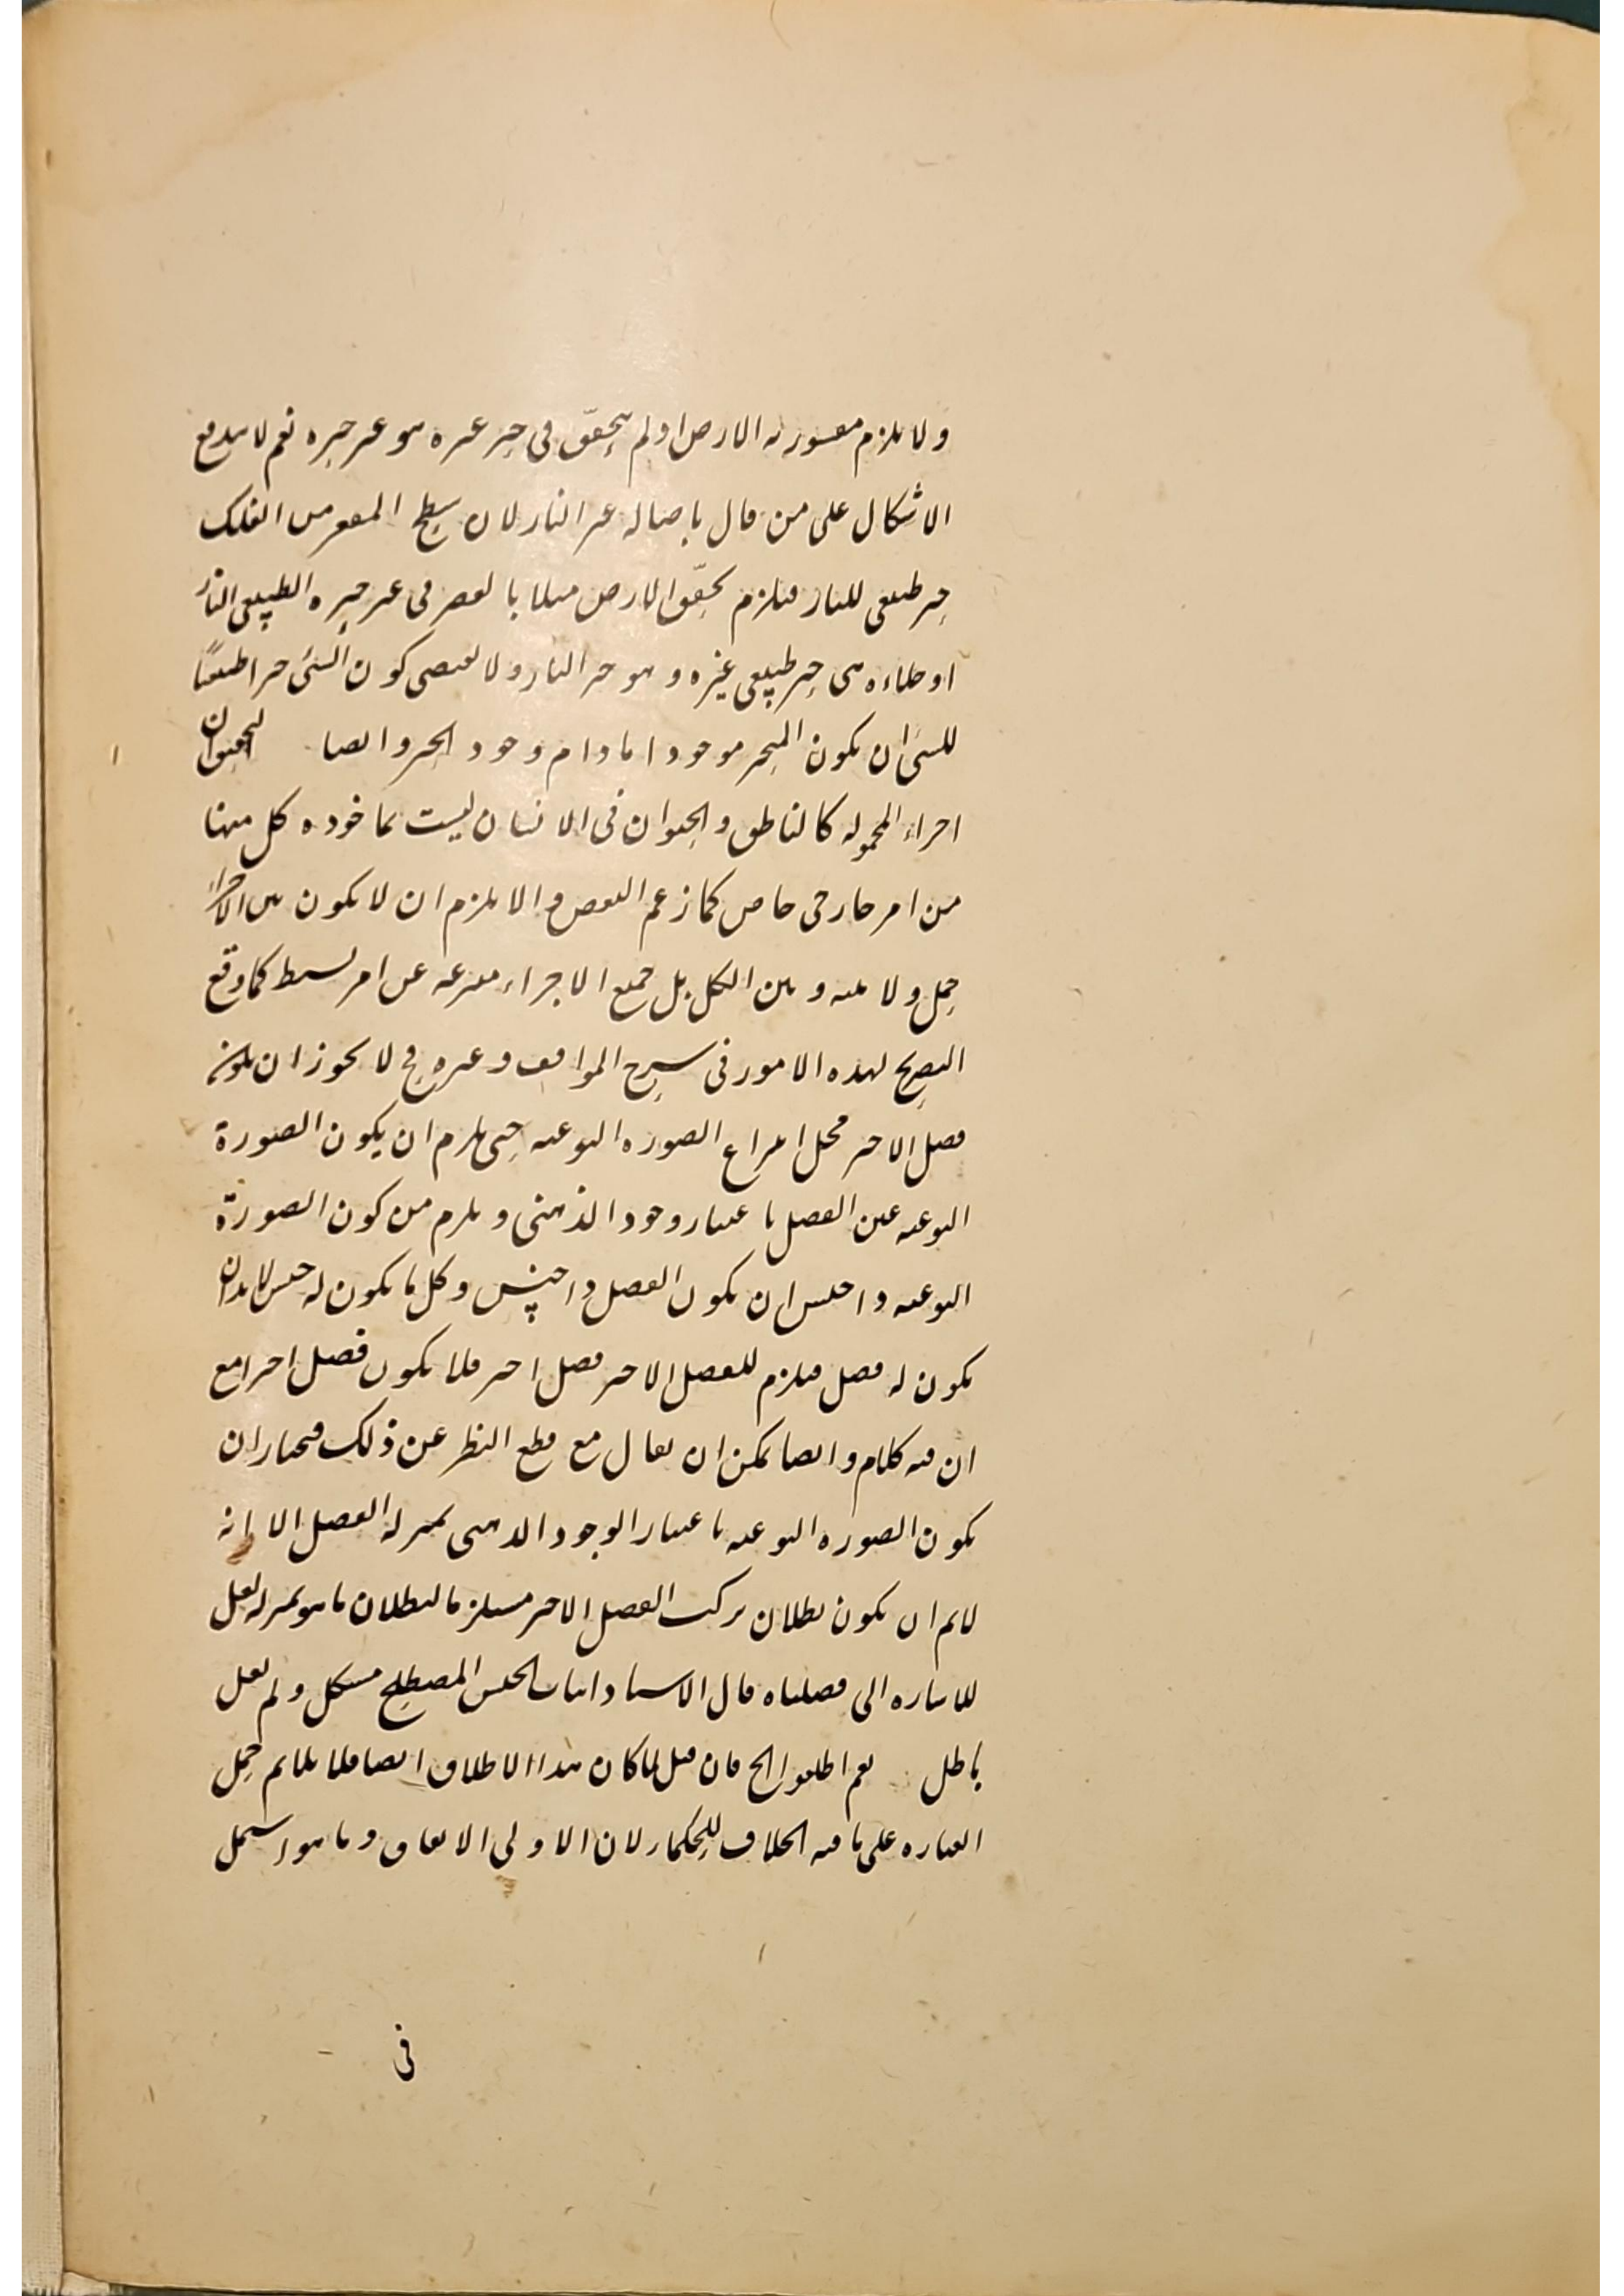 ولا يلزم مقسورية الارض اولم يتحقق فى حيز غيره هو غير حيزه نعم لا يندفع
الاشكال على من قال باصالة غير النار لان سطح المقعر من الفلك
حيز طبيعى للنار فيلزم تحقق الارض مثلا بالقسر فى غير حيزه الطبيعى النار
او خلاءه من حيز طبيعى غيره وهو حيز النار ولا يقتضى كون الشئ حيزا طبيعيا
للشئ ان يكون المتحيز موجودا مادام وجود الحيز وايضا
اجزاء المحمولة كالناطق والحيوان فى الانسان ليست بماخوذه كل منها
من امر خارجى خاص كما زعم البعض والا يلزم ان لا يكون بين الاجزاء
حمل ولا بينه وبين الكل بل جميع الاجزاء منتزعة عن امر بسيط كما وقع
التصريح لهذه الامور فى شرح المواقف وغيره ح لا يجوز ان يكون
فصل الاخير محل انتزاع الصورة النوعية حتى يلزم ان يكون الصورة
النوعية عين الفصل باعتبار وجود الذهنى ويلزم من كون الصورة
النوعية ذا جنس ان يكون الفصل ذا جنس وكل ما يكون له جنس لا بد ان
يكون له فصل فيلزم للفصل الاخير فصل اخير فلا يكون فصل اخيرا مع
ان فيه كلام وايضا يمكن ان يقال مع قطع النظر عن ذلك فيختار ان
يكون الصورة النوعية باعتبار الوجود الذهنى بمنزلة الفصل الا انه
لا يتم ان يكون بطلان تركب الفصل الاخير مستلزما لبطلان ما هو بمنزلة لعل
للاشارة الى فصلناه قال الاستاد اثبات الجنس المصطلح مشكل ولم يقل
باطل نعم اطلقوا الخ فان قيل لما كان هذا الاطلاق ايضا فلا يلايم حمل
العبارة على ما فيه الخلاف للحكماء لان الاولى الاتفاق وما هو اشمل
فى